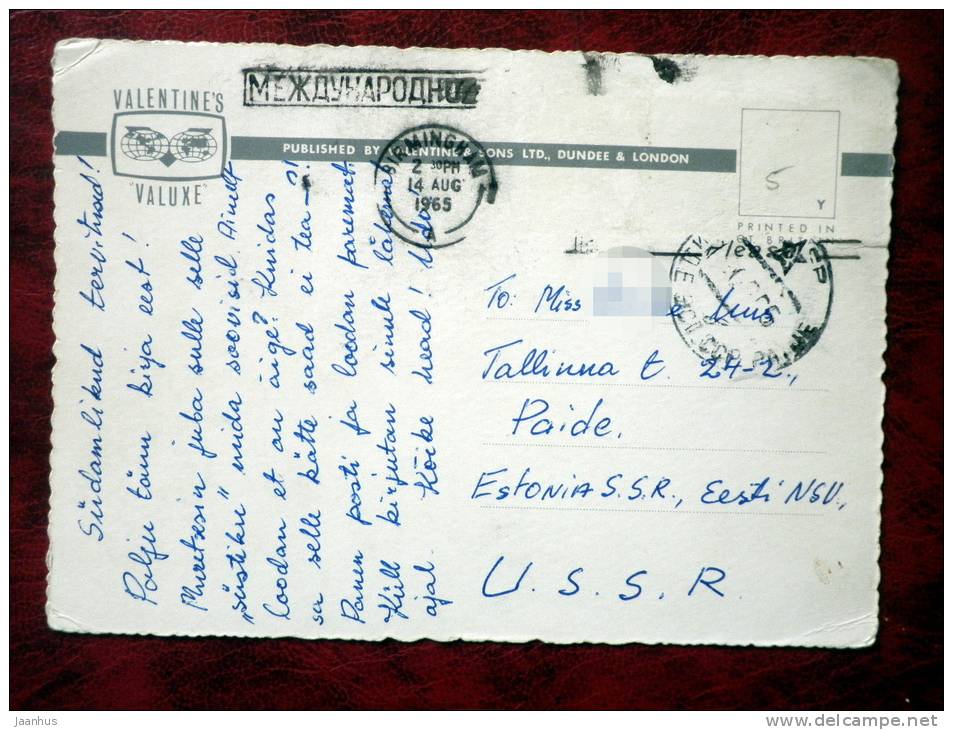 МЕЖДУНАРОДНОЕ
VALENTINE'S
"VALUXE"
PUBLISHED BY VALENTINE & SONS LTD., DUNDEE & LONDON
BIRMINGHAM
2 30PM
14 AUG
1965
5
Y
PRINTED IN
GT BRITAIN
Südamlikud tervitused!
Palju tänu kirja eest!
Muretsesin juba sulle selle
„süstiku" mida soovisid. Ainult
loodan et on õige? Kuidas
sa selle kätte saad ei tea—?!
Panen posti ja loodan paremat.
Küll kirjutan sinule lähemat
ajal. Kõike head!
To: Miss
Tallinna t. 24-2.,
Paide.
Estonia S.S.R., Eesti NSV.,
U. S. S. R.
jaanhus
www.delcampe.net